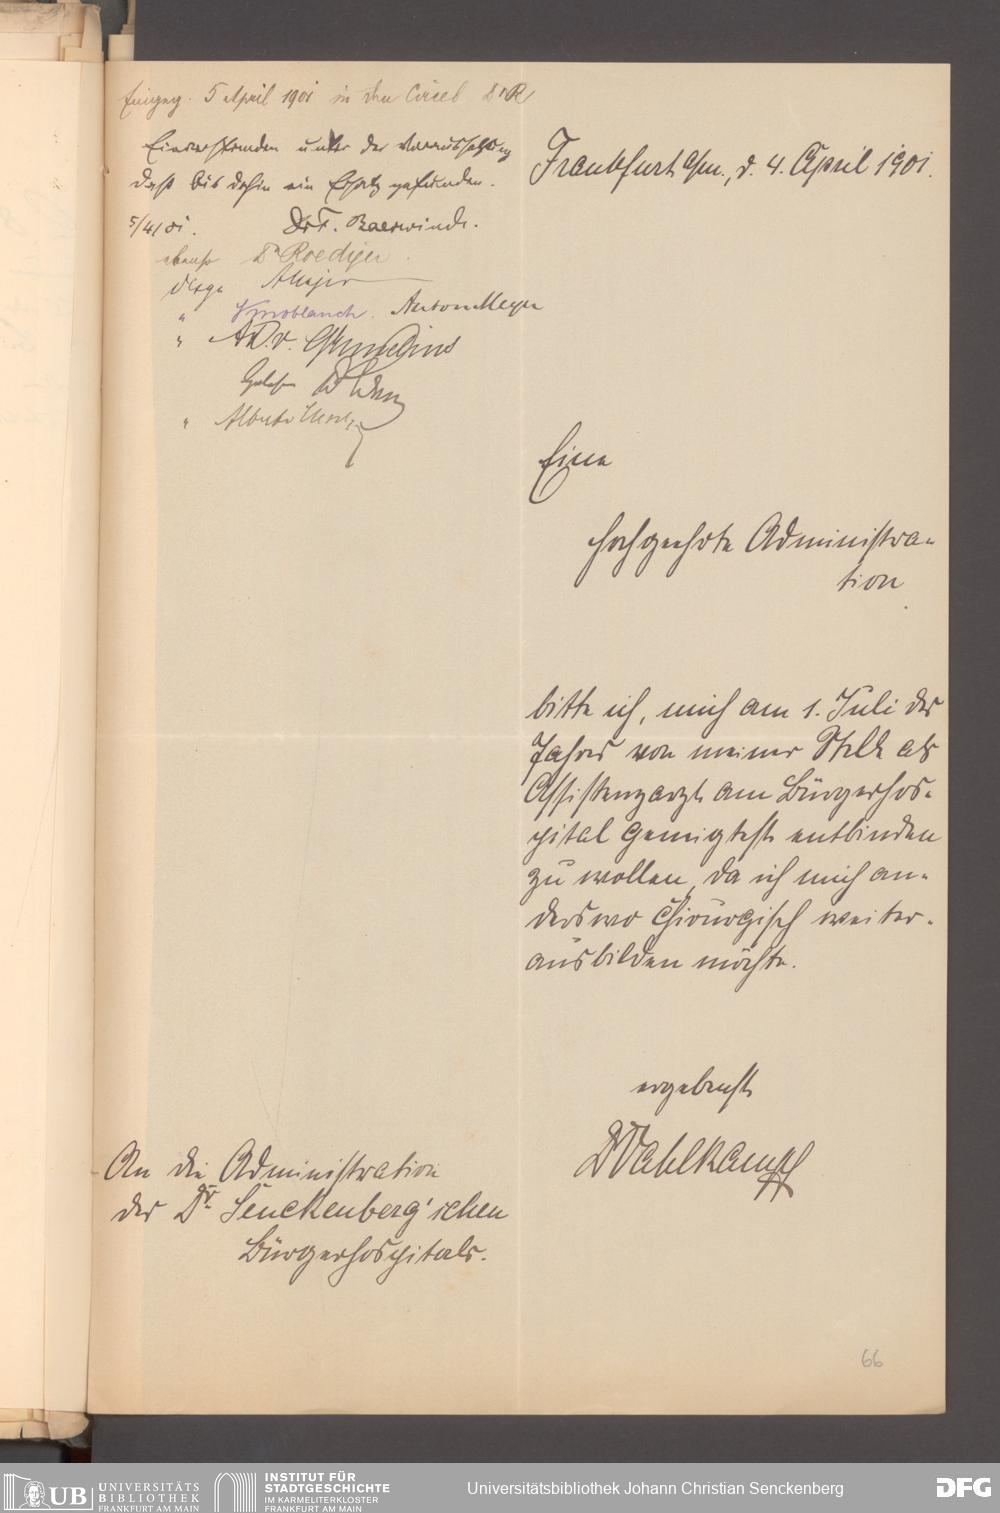 Eingeg. 5 April 1901 in den Circel Dr R
Einverstanden unter der Voraussetzung
daß bis dahin ein Ersatz gefunden.
5/4/01. Dr F. Baerwindt.
ebenso Dr Roediger.
desgl AMajer
" Knoblauch. Anton Meyer
" 
Gelesen
" Albert
Frankfurt a/m., d. 4. April 1901.
Eine
hochgeehrte Administra-
tion
bitte ich, mich am 1. Juli des
Jahres von meiner Stelle als
Assistenzarzt am Bürgerhos-
pital geneigtest entbinden
zu wollen, da ich mich an-
derswo chirurgisch weiter-
ausbilden möchte.
ergebenst
DVahlkampf
An die Administration
der Dr. Senckenberg'schen
Bürgerhospitals.
66
UB UNIVERSITÄTS
BIBLIOTHEK
FRANKFURT AM MAIN
INSTITUT FÜR
STADTGESCHICHTE
IM KARMELITERKLOSTER
FRANKFURT AM MAIN
Universitätsbibliothek Johann Christian Senckenberg
DFG